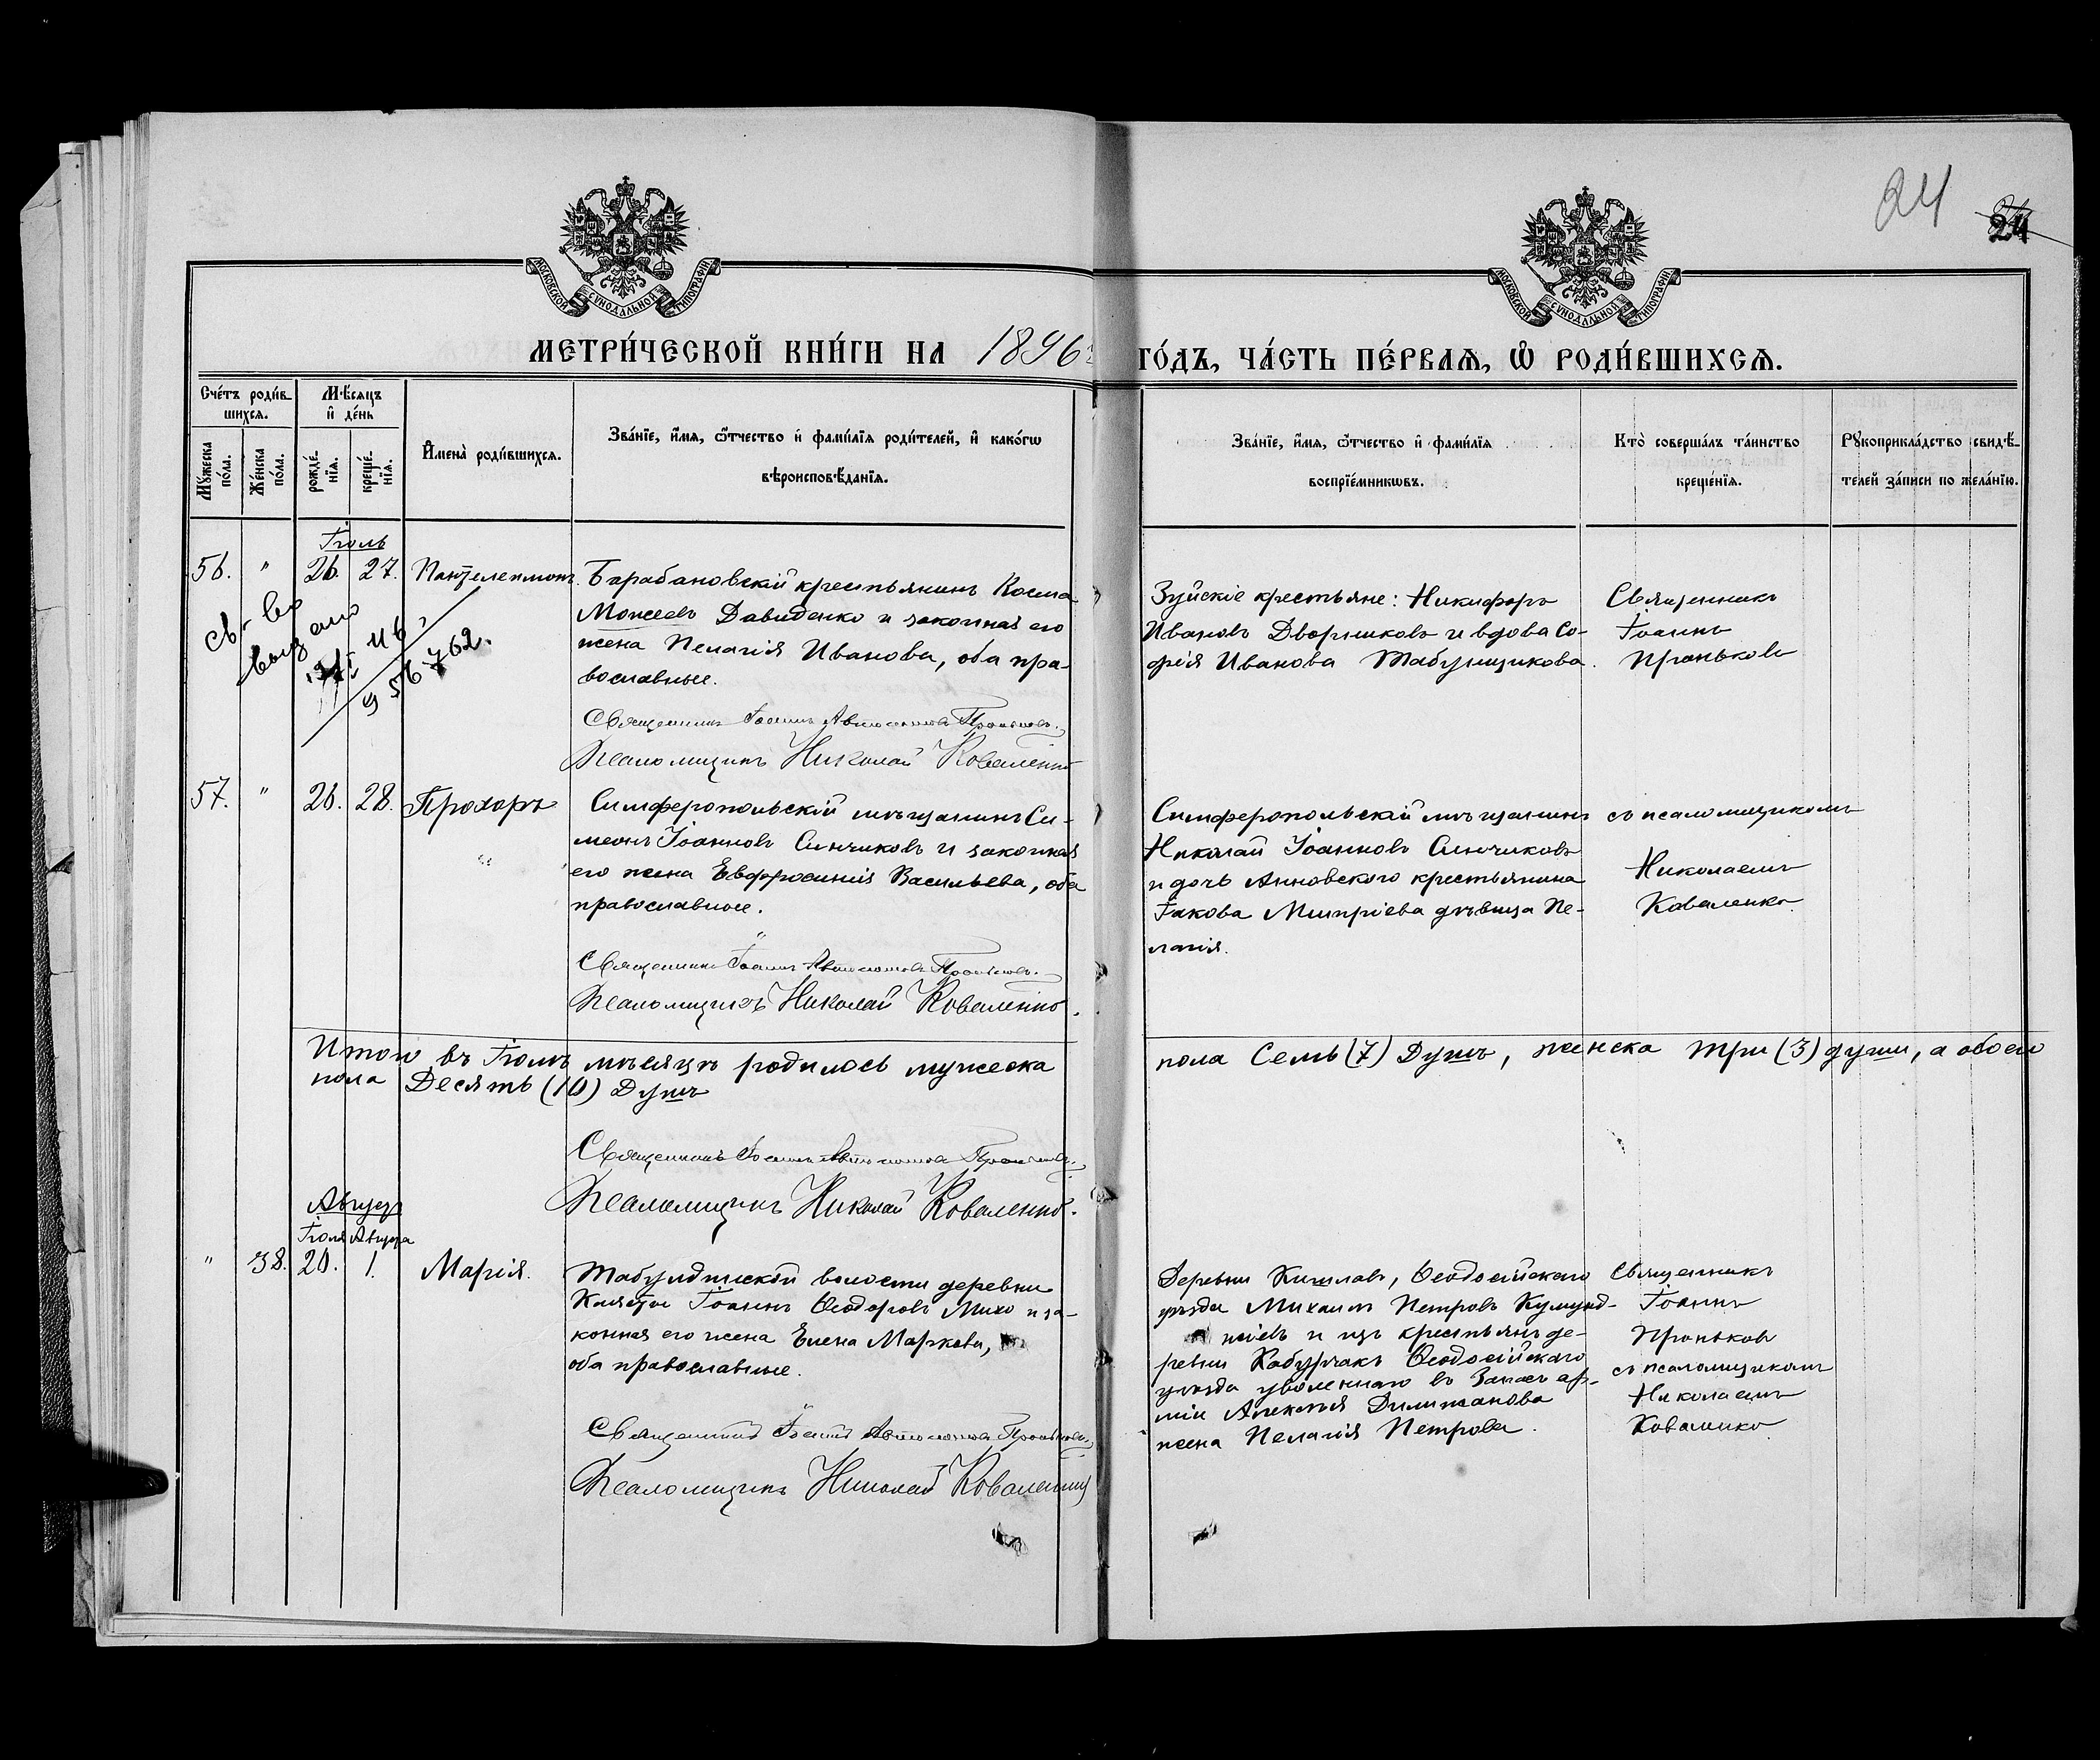 24
24
МОСКОВСКОЙ СѴНОДАЛЬНОЙ ТИПОГРАФІИ
МОСКОВСКОЙ СѴНОДАЛЬНОЙ ТИПОГРАФІИ
МЕТРИ́ЧЕСКОЙ КНИ́ГИ НА 1896 ГО́ДЪ, ЧА́СТЬ ПЕ́РВАѦ, Ѡ҆ РОДИ́ВШИХСѦ.
Сче́тъ роди́в-
шихсѧ.
Мꙋ́жеска по́ла.
Же́нска по́ла.
Мѣ́сѧцъ
и҆ де́нь
рожде́-нїѧ.
креще́-нїѧ.
И҆мена̀ роди́вшихсѧ.
Зва́нїе, и҆́мѧ, ѻ҆́тчество и҆ фами́лїѧ роди́телей, и҆ како́гѡ
вѣроисповѣ́данїѧ.
Зва́нїе, и҆́мѧ, ѻ҆́тчество и҆ фами́лїѧ
воспрїе́мникѡвъ.
Кто̀ соверша́лъ та́инство
креще́нїѧ.
Рꙋкоприкла́дство свидѣ́-
телей за́писи по жела́нїю.
Іюль
56. " 26. 27. Пантелеимонъ.
Барабановскій крестьянинъ Косма
Моисеевъ Давиденко и законная его
жена Пелагія Иванова, оба пра-
вославные.
Священникъ Іоаннъ Автономовъ Проньковъ.
Псаломщикъ Николай Коваленко
Зуйскіе крестьяне: Никифоръ
Ивановъ Дворниковъ и вдова Со-
фія Иванова Табунщикова.
Священникъ
Іоаннъ
Проньковъ
св-во
выдано
116
956762.
57. " 26. 28. Прохоръ
Симферопольскій мѣщанинъ Си-
меонъ Іоанновъ Синчиковъ и законная
его жена Евфросинія Васильева, оба
православные.
Священникъ Іоаннъ Автономовъ Проньковъ.
Псаломщикъ Николай Коваленко.
Симферопольскій мѣщанинъ
Николай Іоанновъ Синчиковъ
и дочь Анновского крестьянина
Іакова Митріева дѣвица Пе-
лагія.
съ псаломщикомъ
Николаемъ
Коваленко.
Итого въ Іюлѣ мѣсяцѣ родилось мужеска пола Семь (7) Душъ, женска три (3) души, а обоего
пола Десять (10) Душъ
Священникъ Іоаннъ Автономовъ Проньковъ.
Псаломщикъ Николай Коваленко.
Августъ
Іюля Августа
" 38. 20. 1. Марія.
Табулдинской волости деревни
Іоаннъ Ѳеодоровъ Михо и за-
конная его жена Елена Маркова,
оба православные.
Священникъ Іоаннъ Автономовъ Проньковъ.
Псаломщикъ Николай Коваленко
Деревни Кишлавъ, Ѳеодосійскаго
уѣзда Михаилъ Петровъ
и изъ крестьянъ де-
ревни Кабурчакъ Ѳеодосійскаго
уѣзда уволеннаго въ Запасъ ар-
міи Алексѣя Дилижанова
жена Пелагія Петрова.
Священникъ
Іоаннъ
Проньковъ
съ псаломщикомъ
Николаемъ
Коваленко.